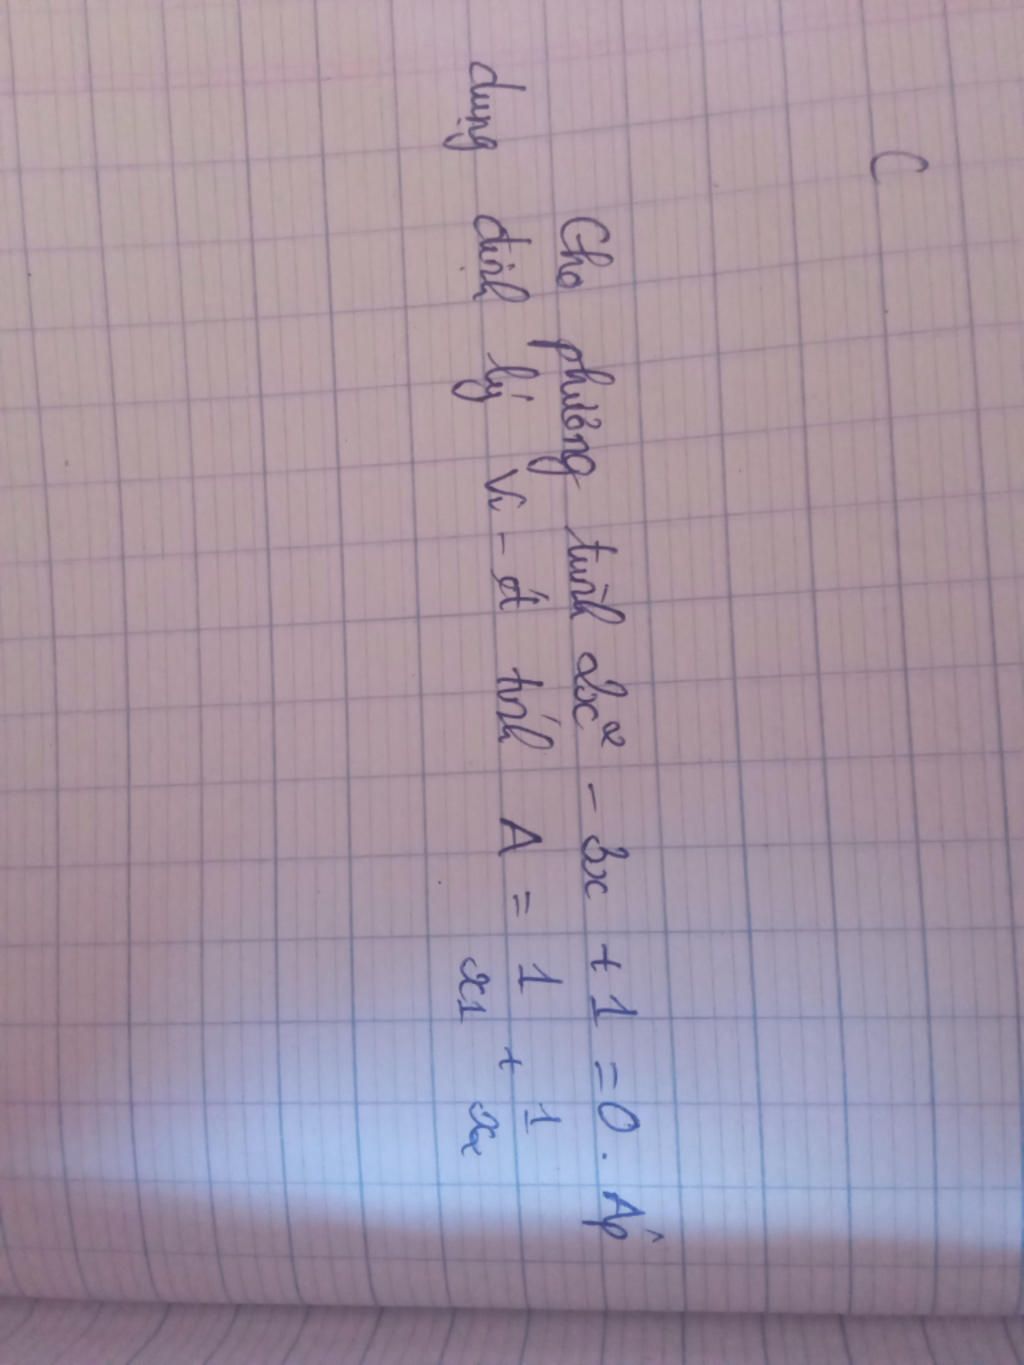 C
Cho phương trình 2x² - 3x + 1 = 0. Áp
dụng định lý Vi-ét tính A = 1/x1 + 1/x2